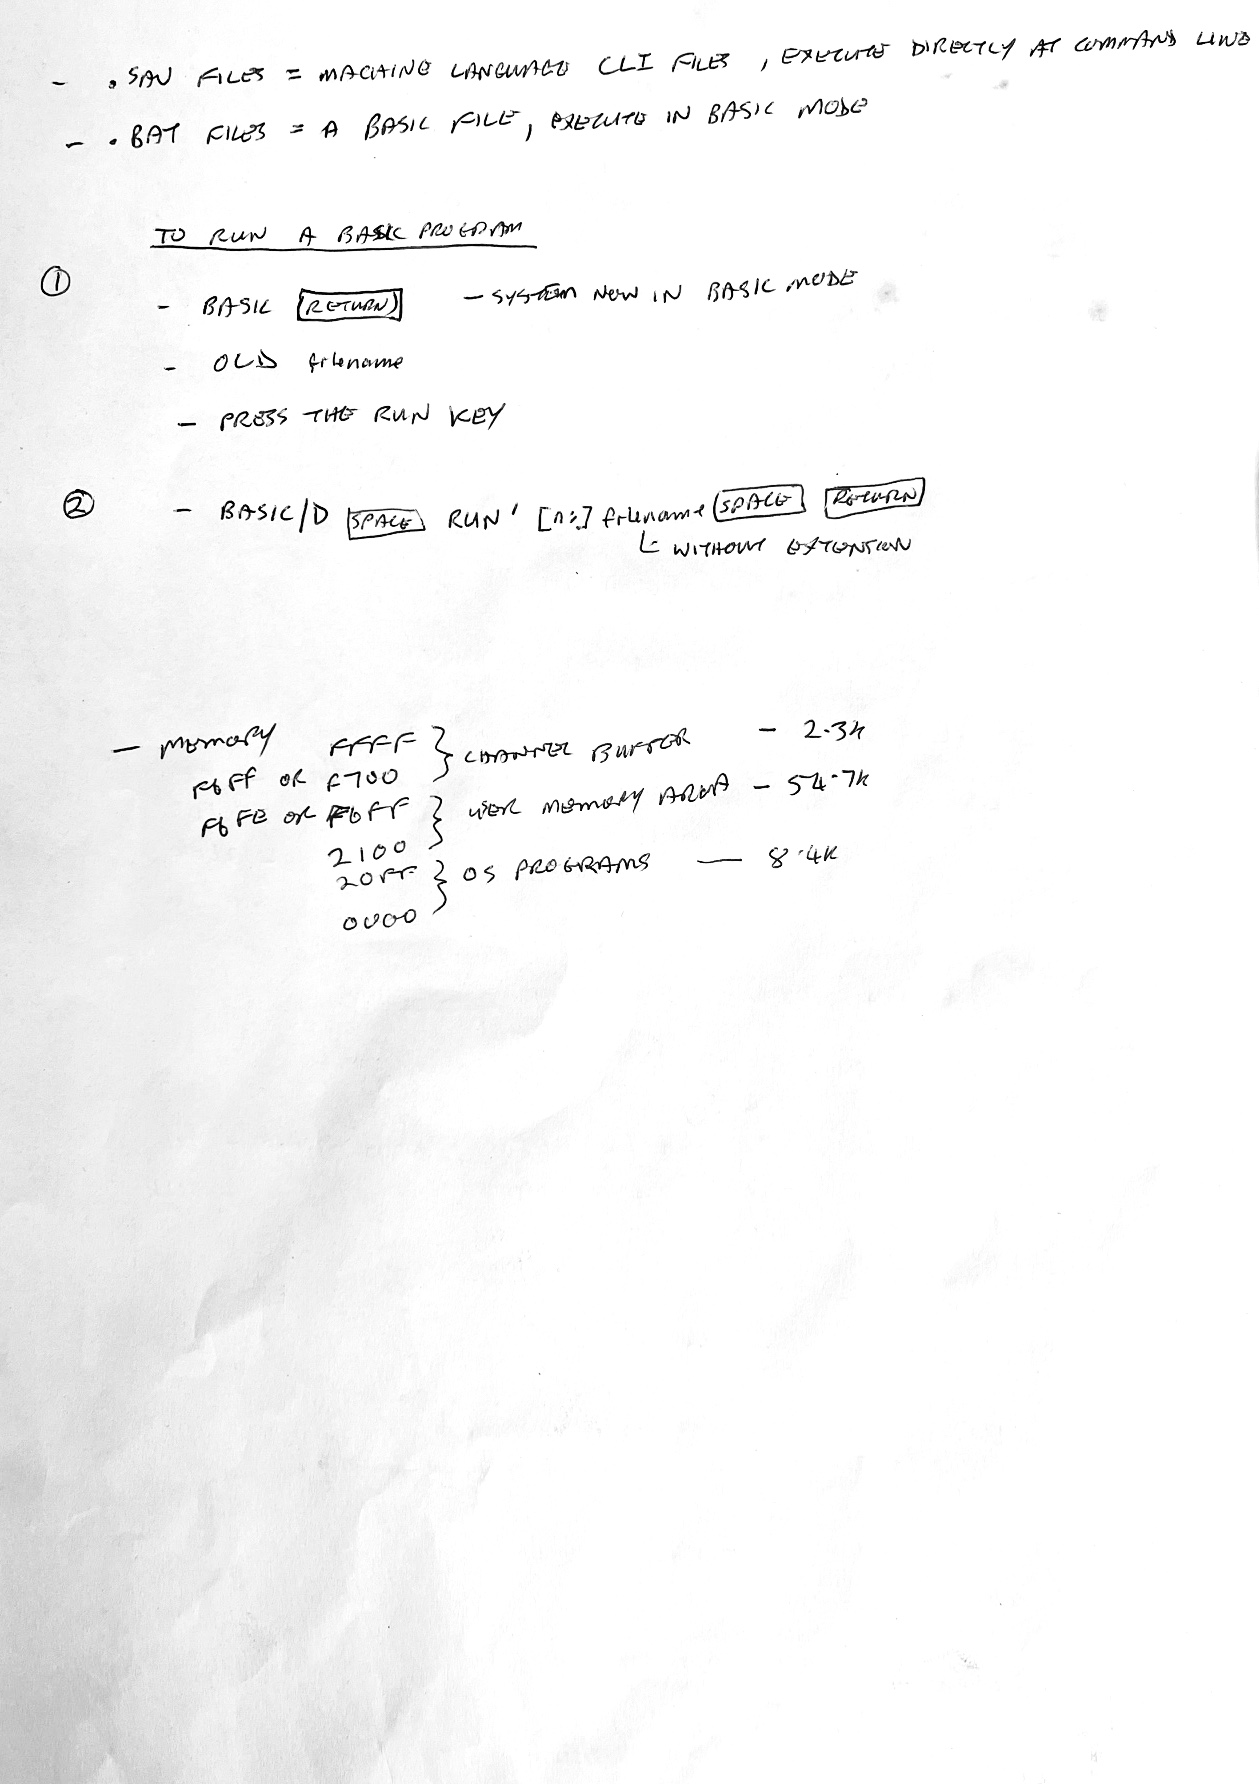 - .SAV FILES = MACHINE LANGUAGE CLI FILES , EXECUTE DIRECTLY AT COMMAND LINE
- .BAT FILES = A BASIC FILE, EXECUTE IN BASIC MODE
TO RUN A BASIC PROGRAM
① - BASIC [RETURN] - SYSTEM NOW IN BASIC MODE
- OLD filename
- PRESS THE RUN KEY
② - BASIC/D [SPACE] RUN' [n:] filename [SPACE] [RETURN]
WITHOUT EXTENTION
- MEMORY FFFF } CHANNEL BUFFER - 2.3K
F6FF OR F700
F6FE OR F6FF } USER MEMORY AREA - 54.7K
2100
20FF } OS PROGRAMS — 8.4K
0000